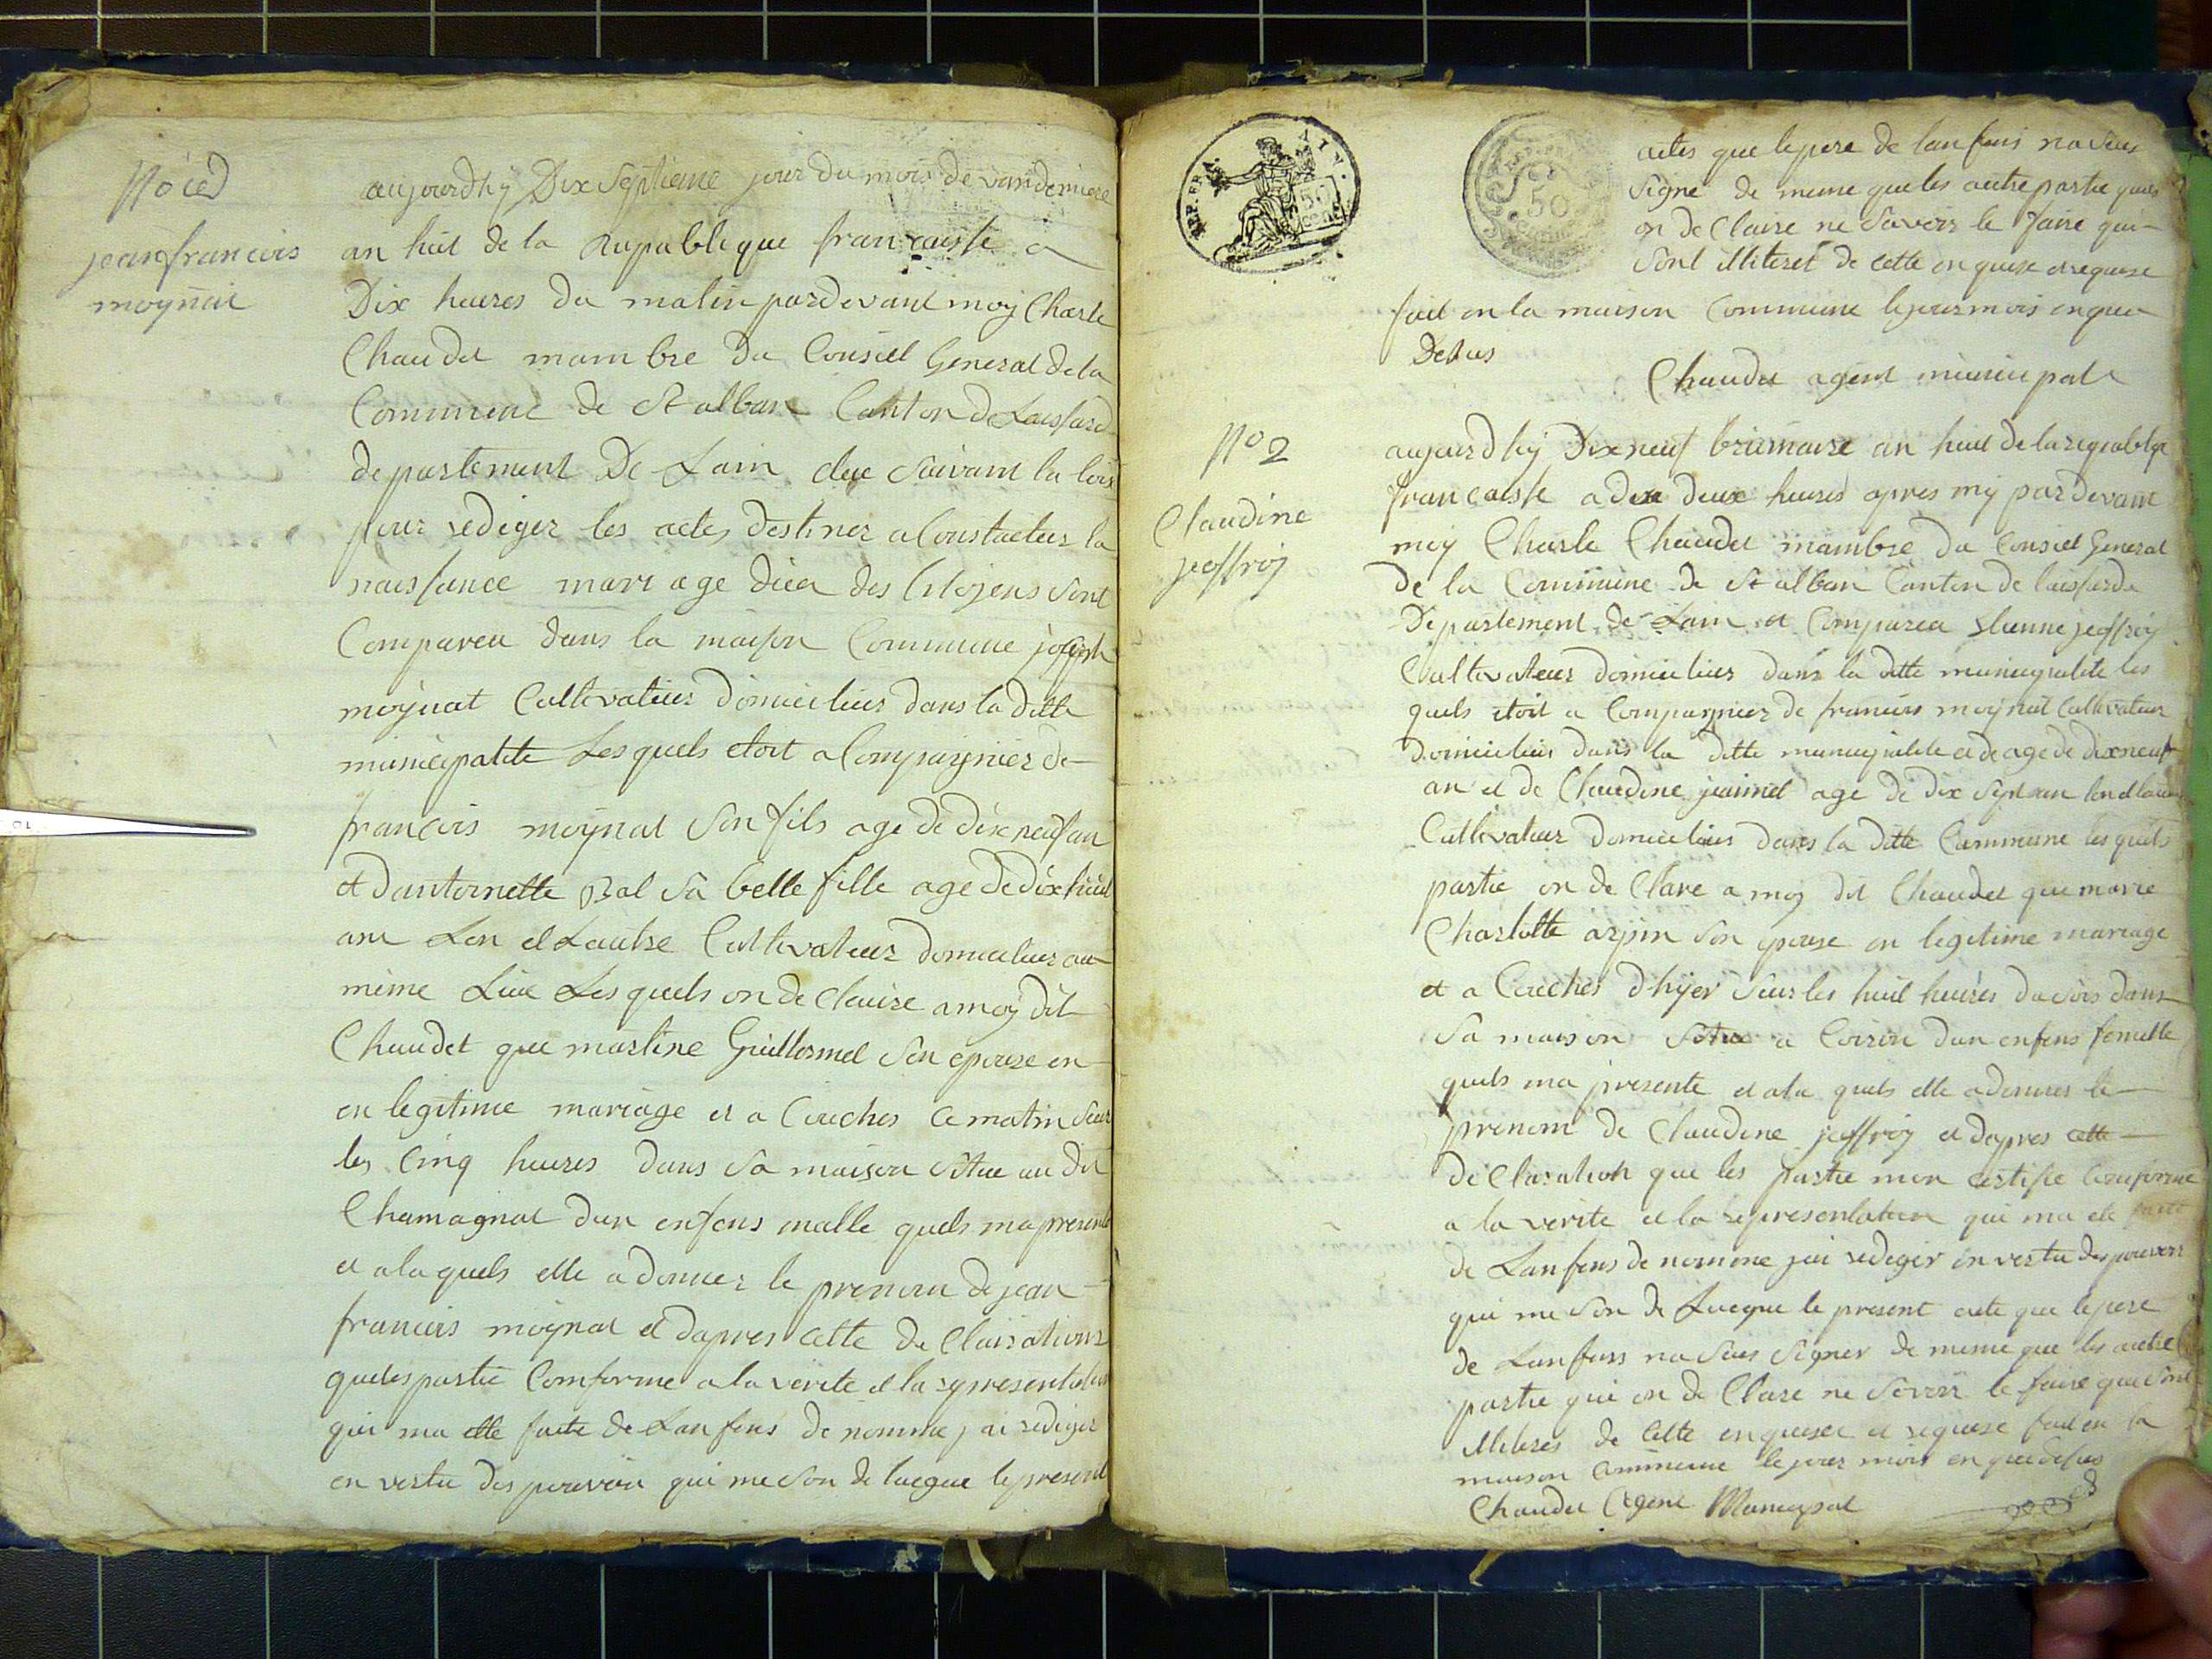 jean francois
moynat
aujourdhy Dix Septieme jour du mois de vandemiere
an huit de la Republique francaisse a
Dix heures du matin pardevant moy Charle
Chaudet mambre du Consiel General de la
Commune de St alban Canton de Laissard
departement De Lain elue suivant la lois
pour rediger les actes destiner a Constacter la
naissance mariage dica des Citoyens sont
Comparu dans la maison Commune joseph
moynat Cultivateur domicilier dans la ditte
municipalite Les quels etoit a Compagnier de
francois moynat son fils age de dix neuf an
et dantoinette Bal sa belle fille age de dix huit
ans Lon et Lautre Cultivateur domicilier au
meme Lieu Les quels on de Claire a moy dit
Chaudet que marline Guillermet son epouse en
en legitime mariage et a Couches ce matin sur
les Cinq heures dans sa maison situe au dit
Chamagnat dun enfens malle quels ma presente
et a la quels elle a donner le prenom de jean
francois moynat et dapres cette de Claisations
que les partie Comforme a la verite et la representation
qui ma ette faite de Lanfens de nomme j ai rediger
en vertu des pouvoir qui me son de lueque le present
REP. FRA.
50
actes que le pere de lanfens na seus
signe de meme que les autre partie quels
on de Claire ne savoir le faire qui
sont illiteret de cette enquise et requise
fait en la maison Commune le jour mois en que
Desus
Chaudet agent municipale
No 2
Claudine
jeoffroy
aujourdhy Dix neuf brumaire an huit de la republiqe
francaisse a dix deux heures apres my pardevant
moy Charle Chaudet mambre du Consiel General
de la Commune de St alban Canton de laissarde
Departement de Lain et Comparea Etienne jeoffroy
Cultivateur domicilier dans la ditte municipalite les
quels etoit a Compagnier de francois moynat Cultivateur
domicilier dans la ditte municipalite et de age de dix neuf
an et de Claudine jeannet age de dix sept an lon et lautre
Cultivateur domicilier dans la ditte Commune les quels
partie on de Clare a moy dit Chaudet que marie
Charlotte arpin son epouse en legitime mariage
et a Couches dhyer sur les huit heures du soir dans
sa maison situe a Coiron dun enfens femelle
quels ma presente et a la quels elle a donner le
prenom de Claudine jeoffroy et dapres cette
de Claration que les partie mon certifie Conforme
a la verite et la representation qui ma ete faite
de Lanfens de nomme jai rediger en vertu des pouvoir
qui me son de Lueque le present acte que le pere
de Lanfens na seus signer de meme que les autre
partie qui on de Clare ne savoir le faire que sont
illiteres de Cette enquise et requise fait en la
maison Commune le jour mois en que desus
Chaudet Agent Municipal